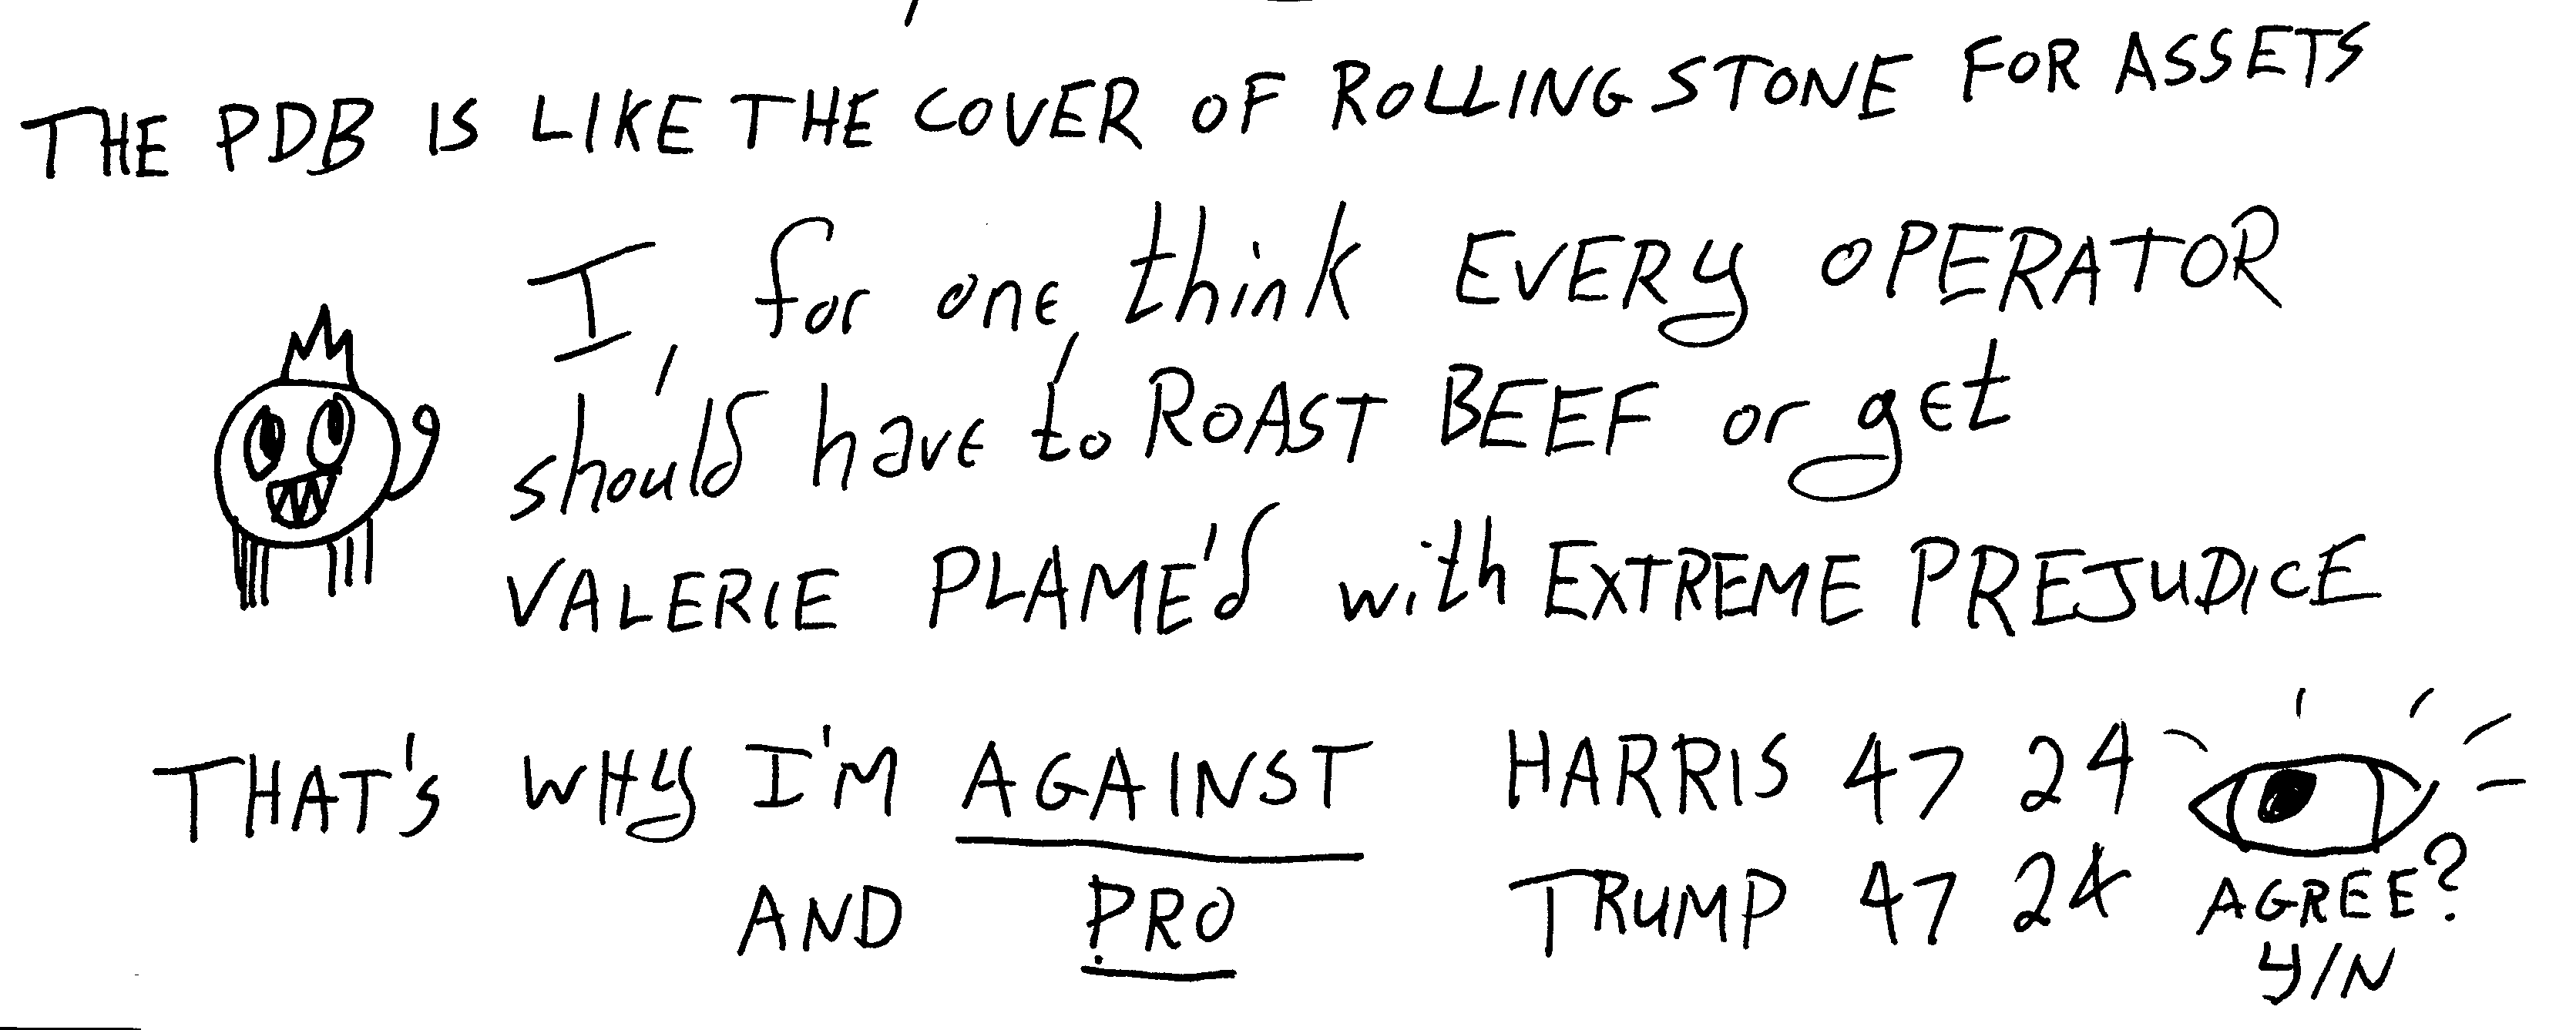 THE PDB IS LIKE THE COVER OF ROLLING STONE FOR ASSETS
I, for one, think EVERY OPERATOR
should have to ROAST BEEF or get
VALERIE PLAME'd with EXTREME PREJUDICE
THAT'S WHY I'M AGAINST HARRIS 47 24
AND PRO TRUMP 47 24 AGREE?
Y/N